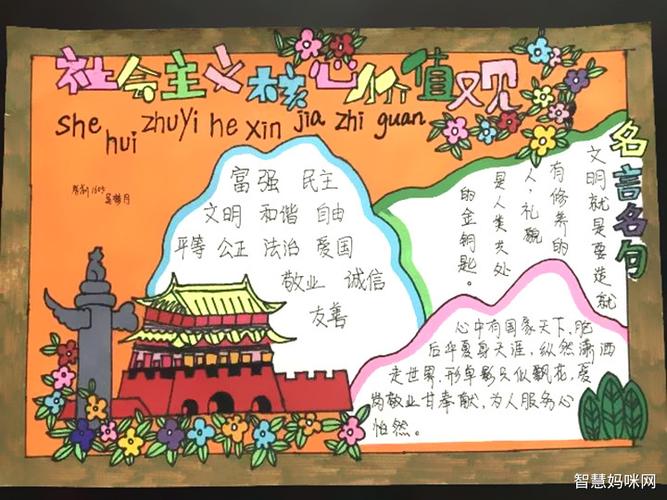 社会主义核心价值观
she hui zhuyi he xin jia zhi guan
1605
富强 民主
文明 和谐 自由
平等 公正 法治 爱国
敬业 诚信
友善
名言名句
文明就是要造就
有修养的
人,礼貌
是人类共处
的金钥匙。
心中有国家天下,肥
后华夏身天涯,纵然潇洒
走世界,形单影只似飘花,爱
岗敬业甘奉献,为人服务心
怡然。
智慧妈咪网